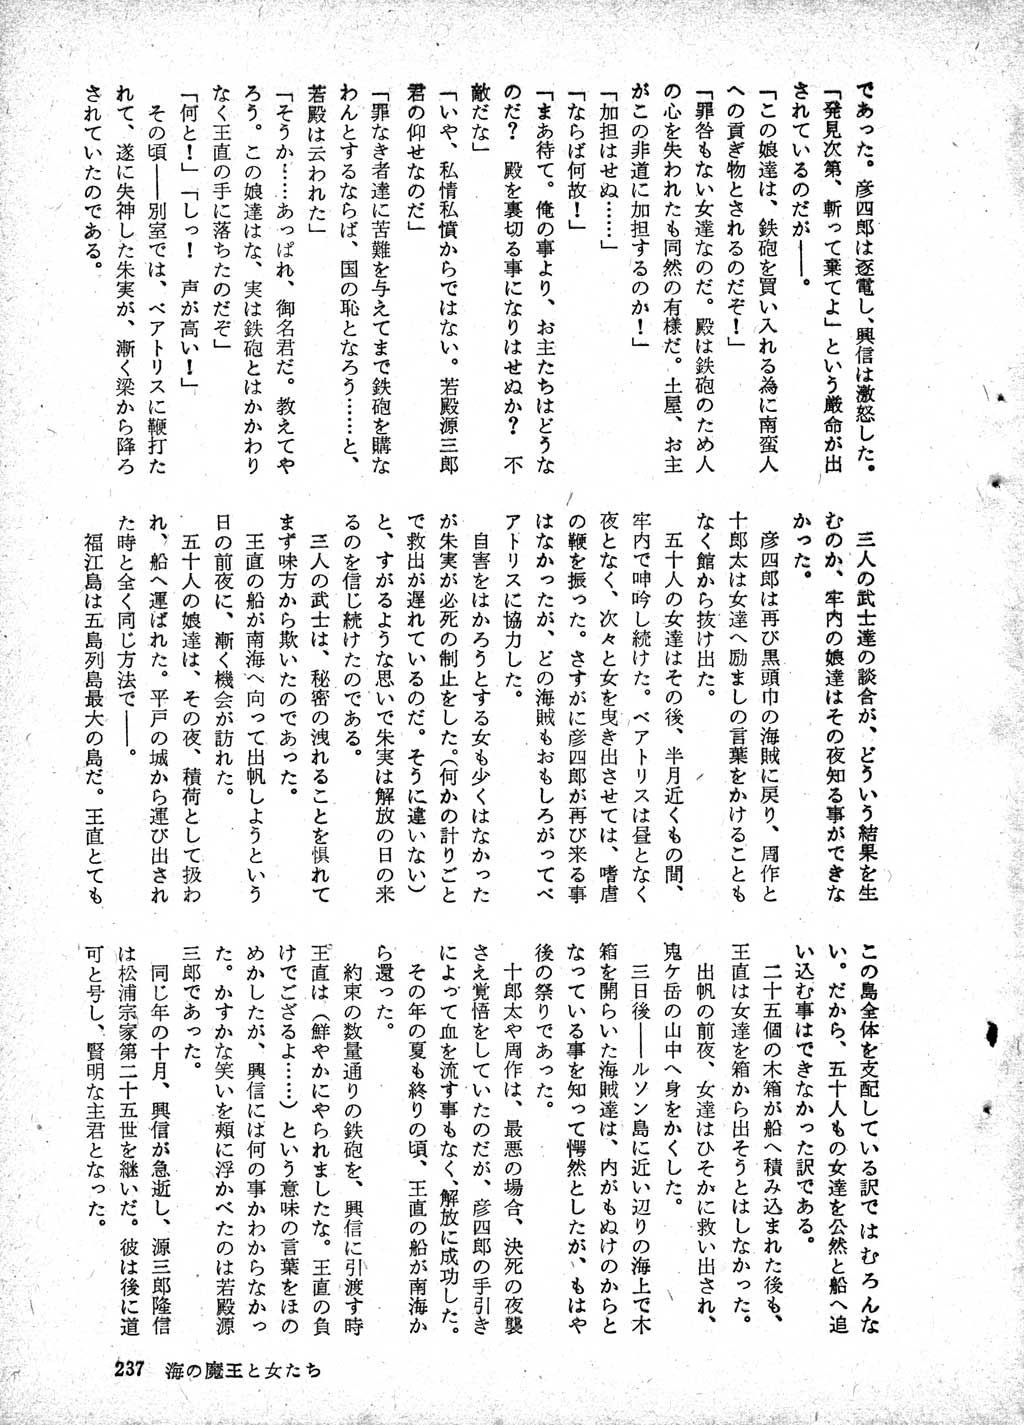 であった。彦四郎は逐電し、興信は激怒した。
「発見次第、斬って棄てよ」という厳命が出
されているのだが――。
「この娘達は、鉄砲を買い入れる為に南蛮人
への貢ぎ物とされるのだぞ！」
「罪咎もない女達なのだ。殿は鉄砲のため人
の心を失われたも同然の有様だ。土屋、お主
がこの非道に加担するのか！」
「加担はせぬ……」
「ならば何故！」
「まあ待て。俺の事より、お主たちはどうな
のだ？　殿を裏切る事になりはせぬか？　不
敵だな」
「いや、私情私憤からではない。若殿源三郎
君の仰せなのだ」
「罪なき者達に苦難を与えてまで鉄砲を購な
わんとするならば、国の恥となろう……と、
若殿は云われた」
「そうか……あっぱれ、御名君だ。教えてや
ろう。この娘達はな、実は鉄砲とはかかわり
なく王直の手に落ちたのだぞ」
「何と！」「しっ！　声が高い！」
その頃――別室では、ベアトリスに鞭打た
れて、遂に失神した朱実が、漸く梁から降ろ
されていたのである。
三人の武士達の談合が、どういう結果を生
むのか、牢内の娘達はその夜知る事ができな
かった。
彦四郎は再び黒頭巾の海賊に戻り、周作と
十郎太は女達へ励ましの言葉をかけることも
なく館から抜け出た。
五十人の女達はその後、半月近くもの間、
牢内で呻吟し続けた。ベアトリスは昼となく
夜となく、次々と女を曳き出させては、嗜虐
の鞭を振った。さすがに彦四郎が再び来る事
はなかったが、どの海賊もおもしろがってベ
アトリスに協力した。
自害をはかろうとする女も少くはなかった
が朱実が必死の制止をした。（何かの計りごと
で救出が遅れているのだ。そうに違いない）
と、すがるような思いで朱実は解放の日の来
るのを信じ続けたのである。
三人の武士は、秘密の洩れることを惧れて
まず味方から欺いたのであった。
王直の船が南海へ向って出帆しようという
日の前夜に、漸く機会が訪れた。
五十人の娘達は、その夜、積荷として扱わ
れ、船へ運ばれた。平戸の城から運び出され
た時と全く同じ方法で――。
福江島は五島列島最大の島だ。王直とても
この島全体を支配している訳ではむろんな
い。だから、五十人もの女達を公然と船へ追
い込む事はできなかった訳である。
二十五個の木箱が船へ積み込まれた後も、
王直は女達を箱から出そうとはしなかった。
出帆の前夜、女達はひそかに救い出され、
鬼ケ岳の山中へ身をかくした。
三日後――ルソン島に近い辺りの海上で木
箱を開らいた海賊達は、内がもぬけのからと
なっている事を知って愕然としたが、もはや
後の祭りであった。
十郎太や周作は、最悪の場合、決死の夜襲
さえ覚悟をしていたのだが、彦四郎の手引き
によって血を流す事もなく、解放に成功した。
その年の夏も終りの頃、王直の船が南海か
ら還った。
約束の数量通りの鉄砲を、興信に引渡す時
王直は（鮮やかにやられましたな。王直の負
けでござるよ……）という意味の言葉をほの
めかしたが、興信には何の事かわからなかっ
た。かすかな笑いを頰に浮かべたのは若殿源
三郎であった。
同じ年の十月、興信が急逝し、源三郎隆信
は松浦宗家第二十五世を継いだ。彼は後に道
可と号し、賢明な主君となった。
237　海の魔王と女たち